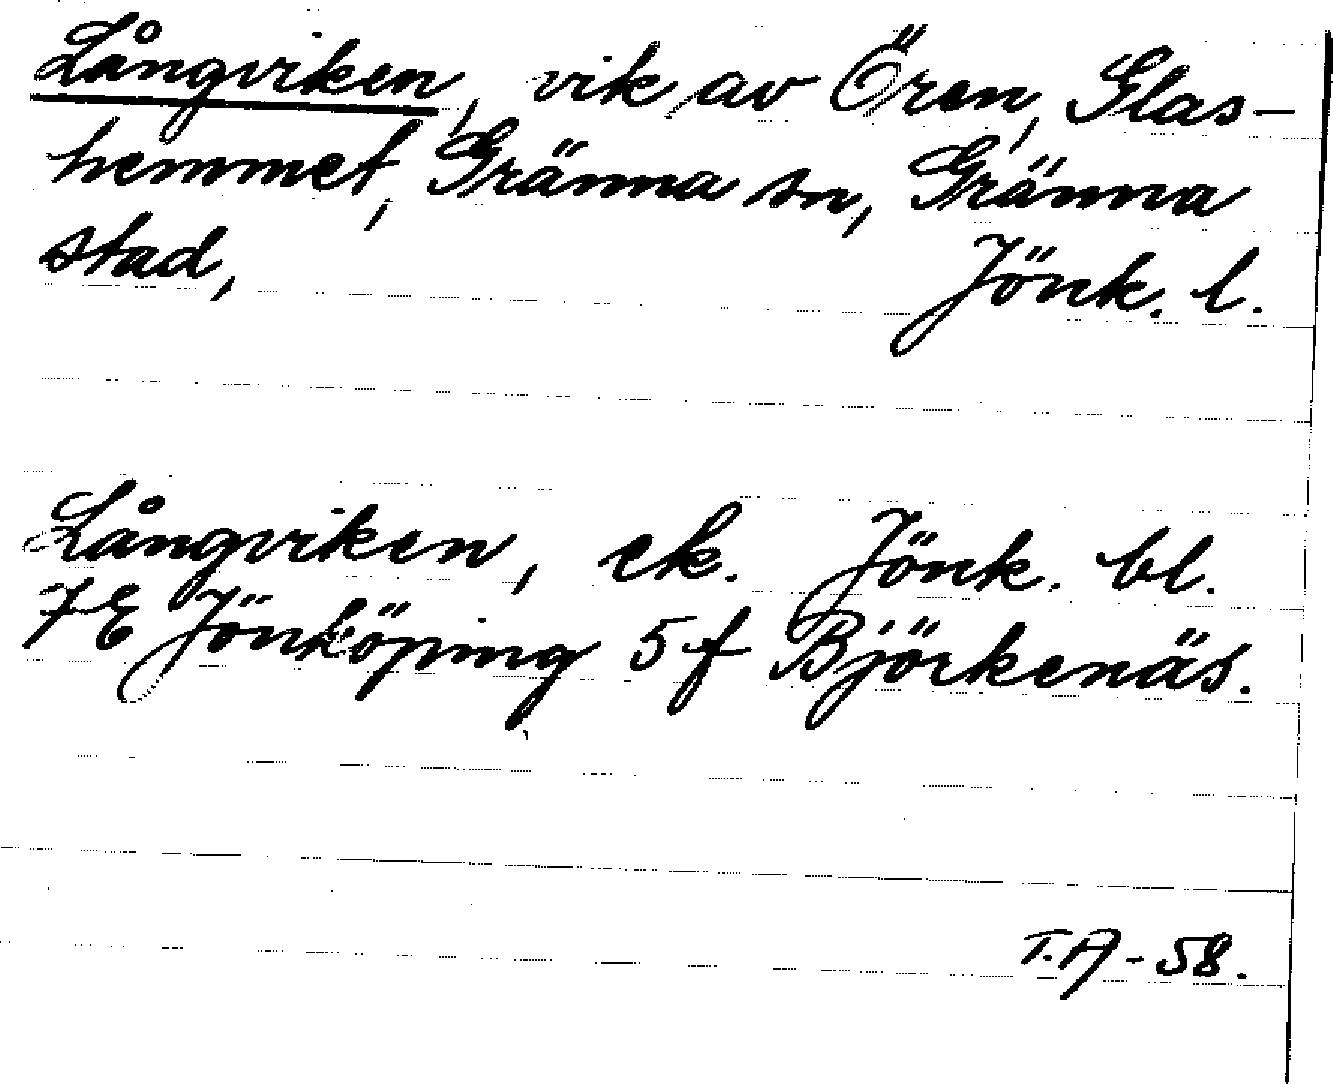 Långviken, vik av Ören, Glas-
hemmet, Gränna sn, Gränna
stad, Jönk. l.
Långviken, ek. Jönk. bl.
7E Jönköping 5f Björkenäs.
T.A-58.